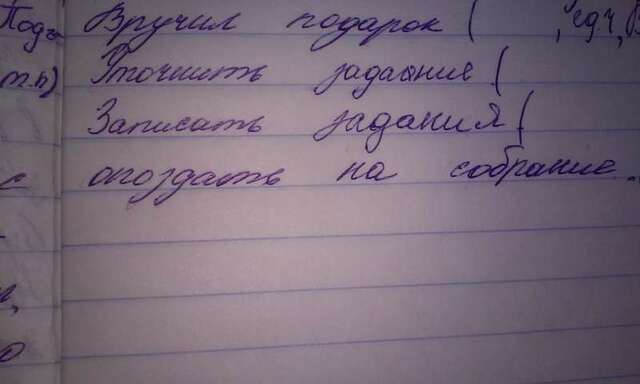 Вручил подарок ( , ед.ч,
т.п) Уточнить задание (
Записать задания (
с опоздать на собрание.